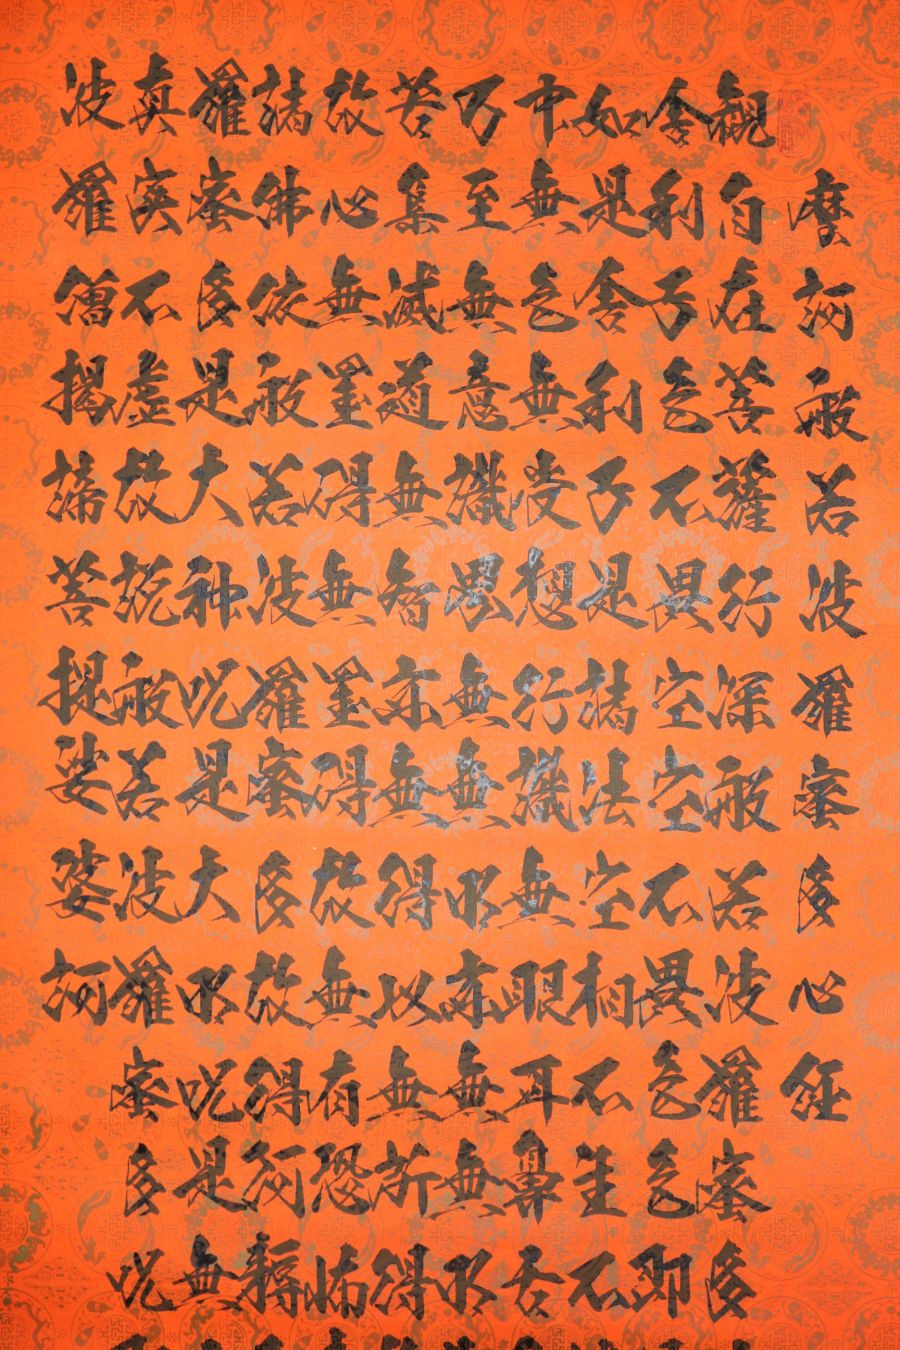 摩訶般若波羅蜜多心經
觀自在菩薩行深般若波羅蜜多
舍利子色不異空空不異色色即
如是舍利子是諸法空相不生不
中無色無受想行識無眼耳鼻舌
乃至無意識界無無明亦無無明
苦集滅道無智亦無得以無所得
故心無罣礙無罣礙故無有恐怖
諸佛依般若波羅蜜多故得阿耨
羅蜜多是大神咒是大明咒是無
真實不虛故說般若波羅蜜多咒
波羅僧揭諦菩提娑婆訶